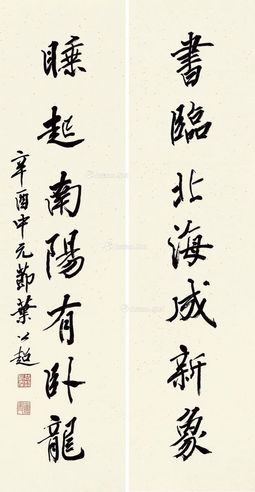 書臨北海成新象
睡起南陽有卧龍
辛酉中元節葉公超